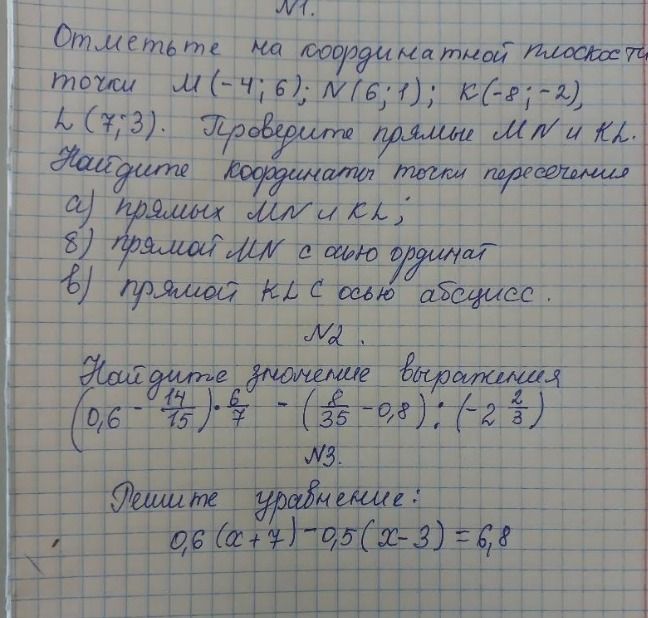 N1.
Отметьте на координатной плоскости
точки M(-4; 6); N(6; 1); K(-8; -2),
L(7; 3). Проведите прямые MN и KL.
Найдите координаты точки пересечения
а) прямых MN и KL;
б) прямой MN с осью ординат
в) прямой KL с осью абсцисс.
N2.
Найдите значение выражения
(0,6 - 14/15) · 6/7 - (8/35 - 0,8) : (-2 2/3)
N3.
Решите уравнение:
0,6(x+7) - 0,5(x-3) = 6,8